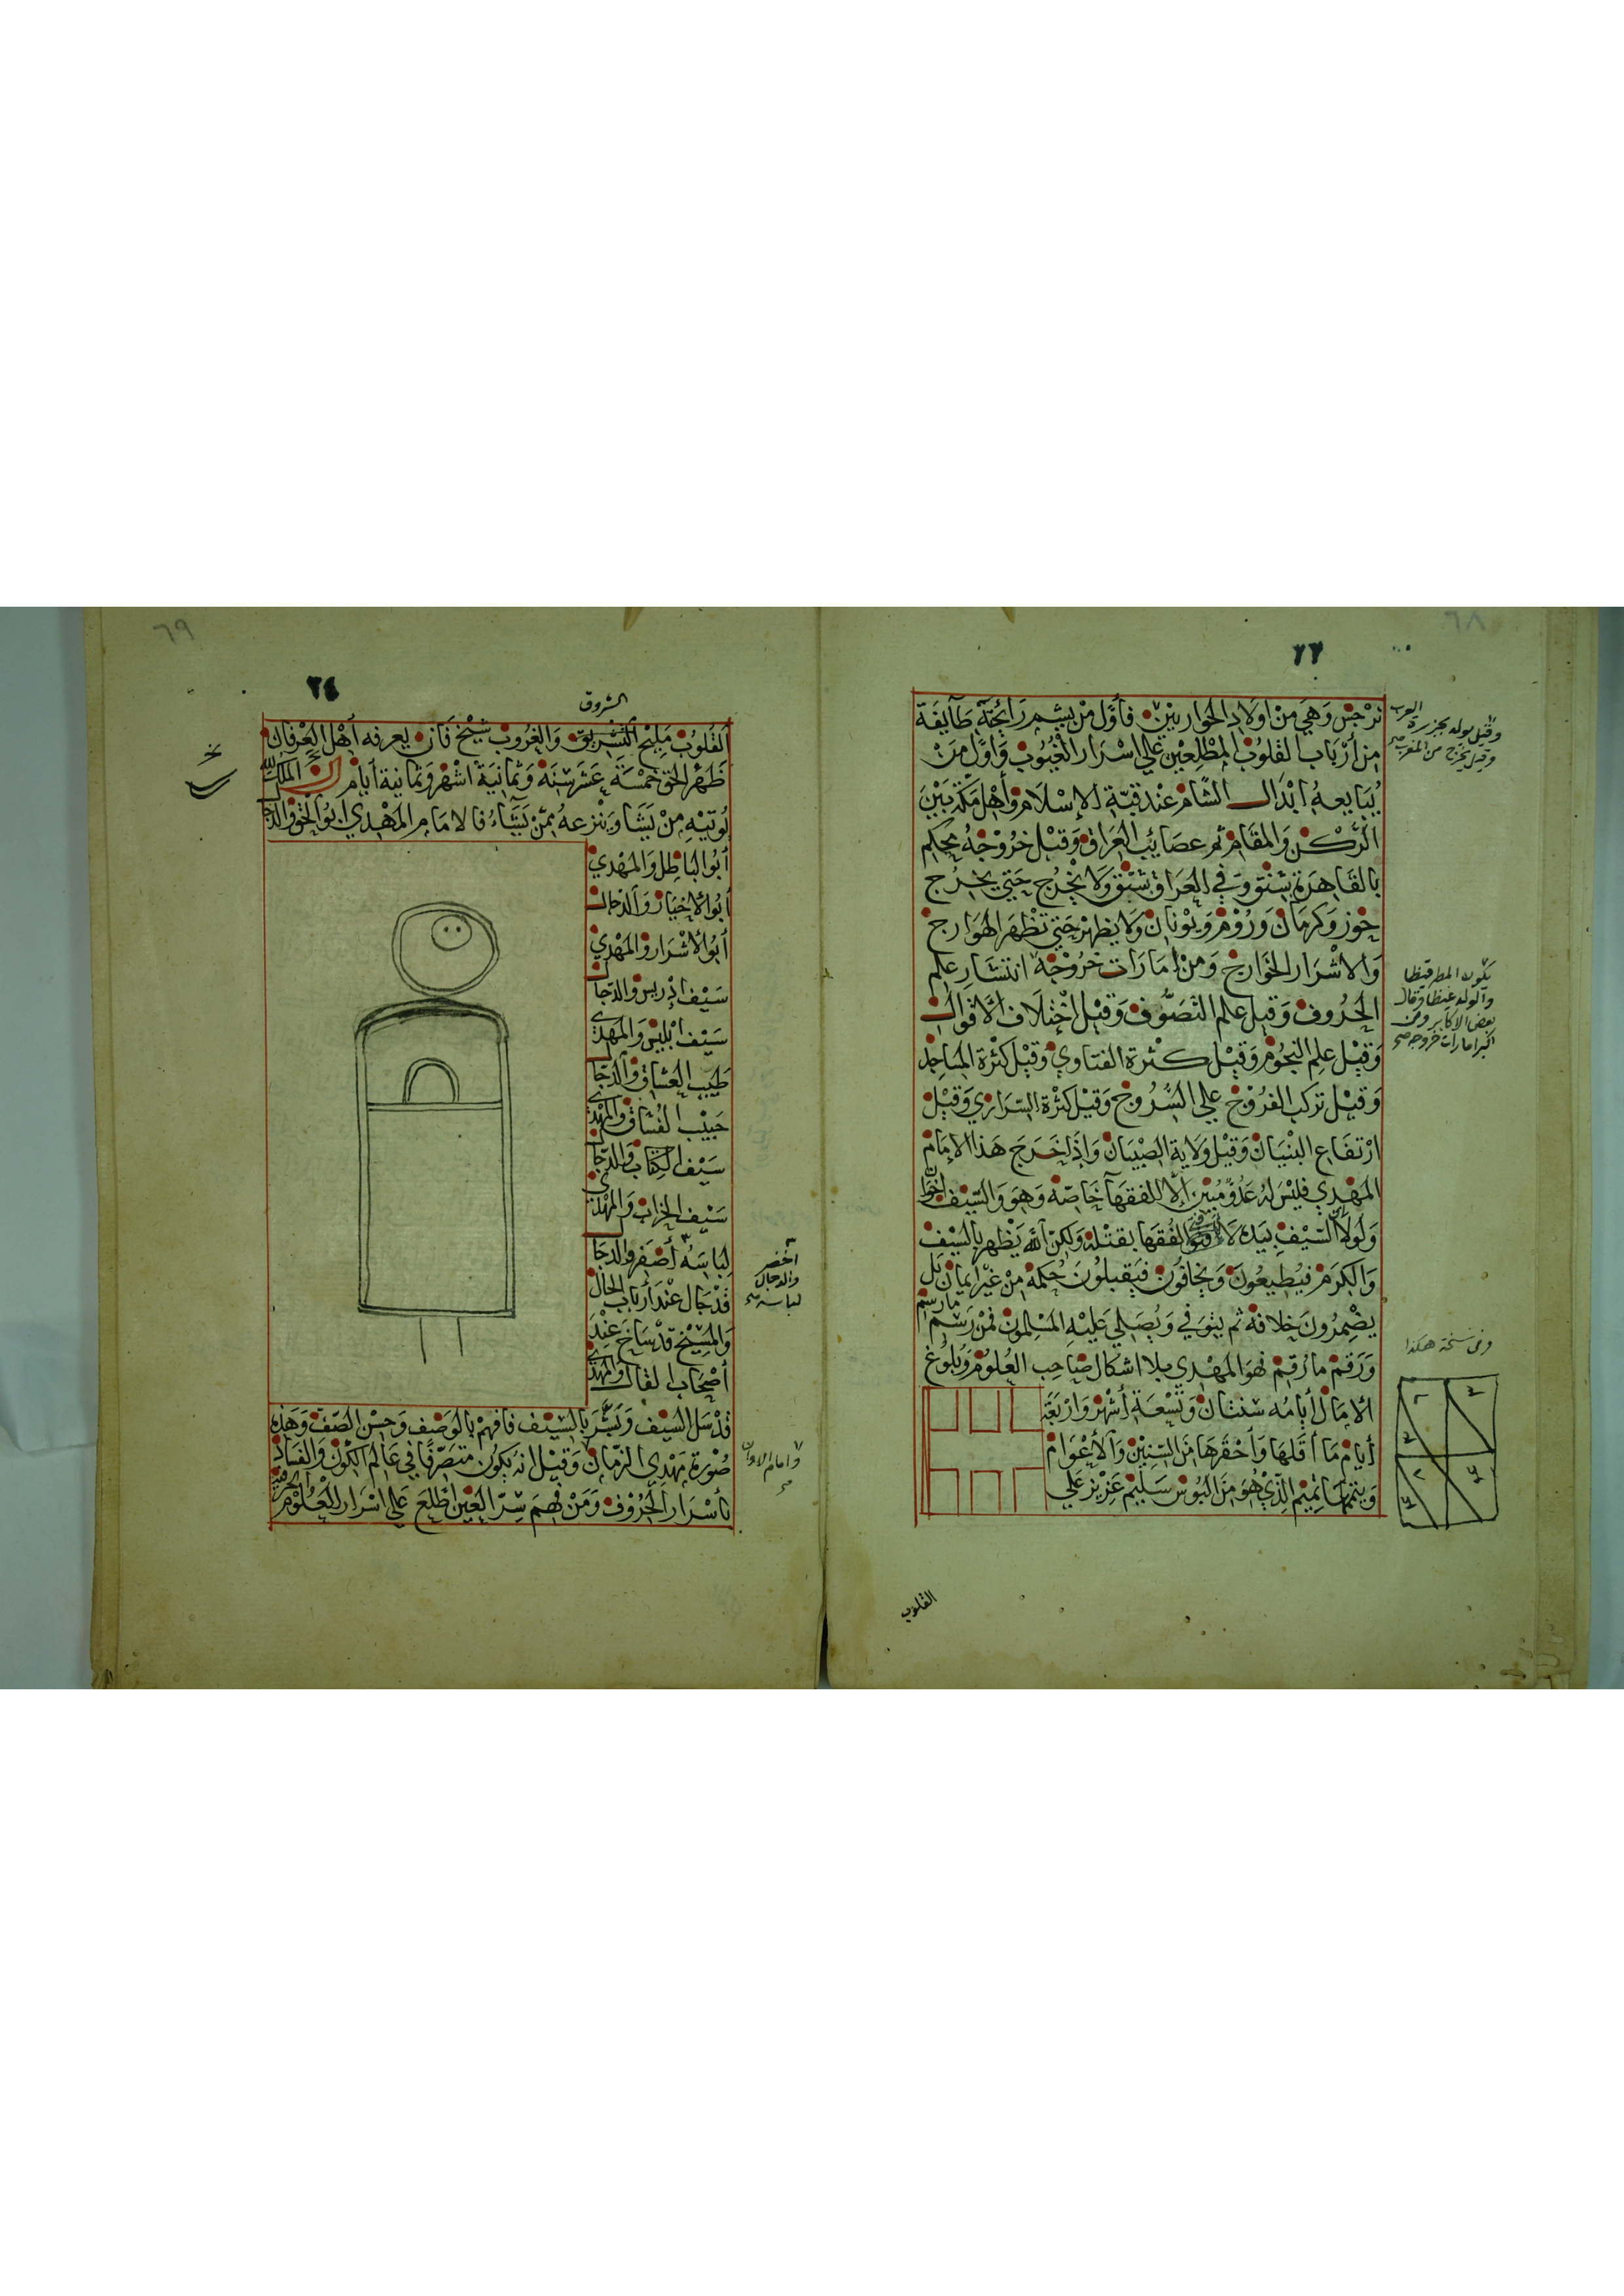 ٦٨
٢٣
نرجس وهي من اولاد الحواريين فأول من يشم رايحته طآيفة
من أرباب القلوب المطلعين علي اسرار الغيوب واول من
يبايعه ابدال الشام عند قبة الإسلام وأهل مكة بين
الركن والمقام ثم عصائب العراق وقبل خروجه يحكم
بالقاهرة شنق وفي العراق شنق ولا يخرج حتي يخرج
خوز وكرمان وروم ويونان ولا يظهر حتي تظهر الهوارج
والاشرار الخوارج ومن امارات خروجه انتشار علم
الحروف وقيل علم التصوف وقيل اختلاف الاقوال
وقيل علم النجوم وقيل كثرة الفتاوي وقيل كثرة المساجد
وقيل تركب الفروج علي السروج وقيل كثرة السراري وقيل
ارتفاع البنيان وقيل ولاية الصبيان واذا خرج هذا الإمام
المهدي فليس له عدو مبين إلا للفقهآ خاصة وهو والسيف اخوان
ولولا السيف بيده لا الفقها بقتله ولكن الله يظهره بالسيف
والكرم فيطيعون ويخافون فيقبلون حكمه من غير ايمان بل
يضمرون خلافه ثم يتوفي ويصلي عليه المسلمون فمن رسم ما رسم
ورقم ما رقم فهو المهدي بلا اشكال صاحب العلوم وبلوغ
الامال أيامه سنتان وتسعة أشهر واربعة
أيام ما أقلها وأحقرها من السنين والأعوام
الذي هو من البوس سليم عزيز علي
القلوب
وقيل مولده بجزيرة العرب
وقيل يخرج من المغرب صح
يكون المطر قيظا
والولد غيظا وقال
بعض الاكابر ومن
اكبر امارات خروجه صح
وفي نسخة هكذا
٦٩
٢٤
الشروق
القلوب مليح التشريق والغروب شيخ فان يعرفه أهل العرفان
ظهر الحق خمسة عشر سنة وثمانية اشهر وثمانية أيام ان الملك لله
يوتيه من يشا وينزعه ممن يشآء فالامام المهدي ابو الحق والدجال
أبو الباطل والمهدي
أبو الأخيار والدجال
أبو الأشرار والمهدي
سيف إدريس والدجال
سيف ابليس والمهدي
طبيب العشاق والدجال
حبيب الفساق والمهدي
سيف الكتاب والدجال
سيف الخراب والمهدي
لباسه أصفر والدجال
قد جال عند أرباب الحال
والمسيخ قد ساخ عند
أصحاب القال والمهدي
قد سل السيف وبشر بالسيف فافهم بالوصف وحسن الصف وهذه
صورة مهدي الزمان وقيل انه يكون متصرفا في عالم الكون والفساد
بأسرار الحروف ومن فهم سر العين اطلع علي اسرار العلوم الحرفية
اخضر
والدجال
لباسه صح
وامام الاوان
صح